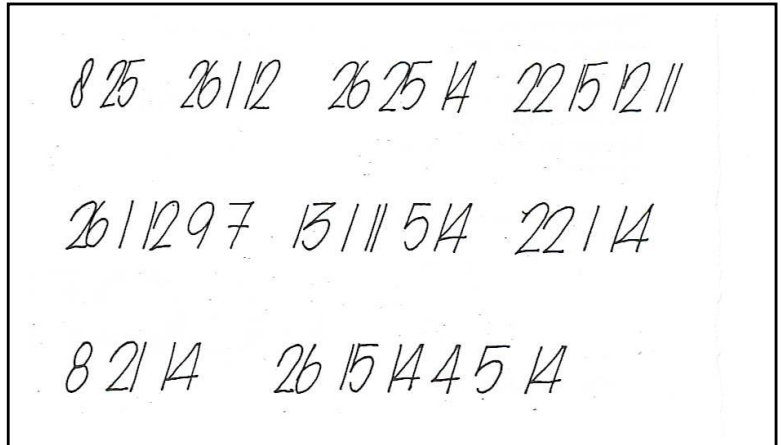 8 25 26 1 12 26 25 14 22 15 12 11
26 1 12 9 7 13 1 11 5 14 22 1 14
8 21 14 26 15 14 4 5 14